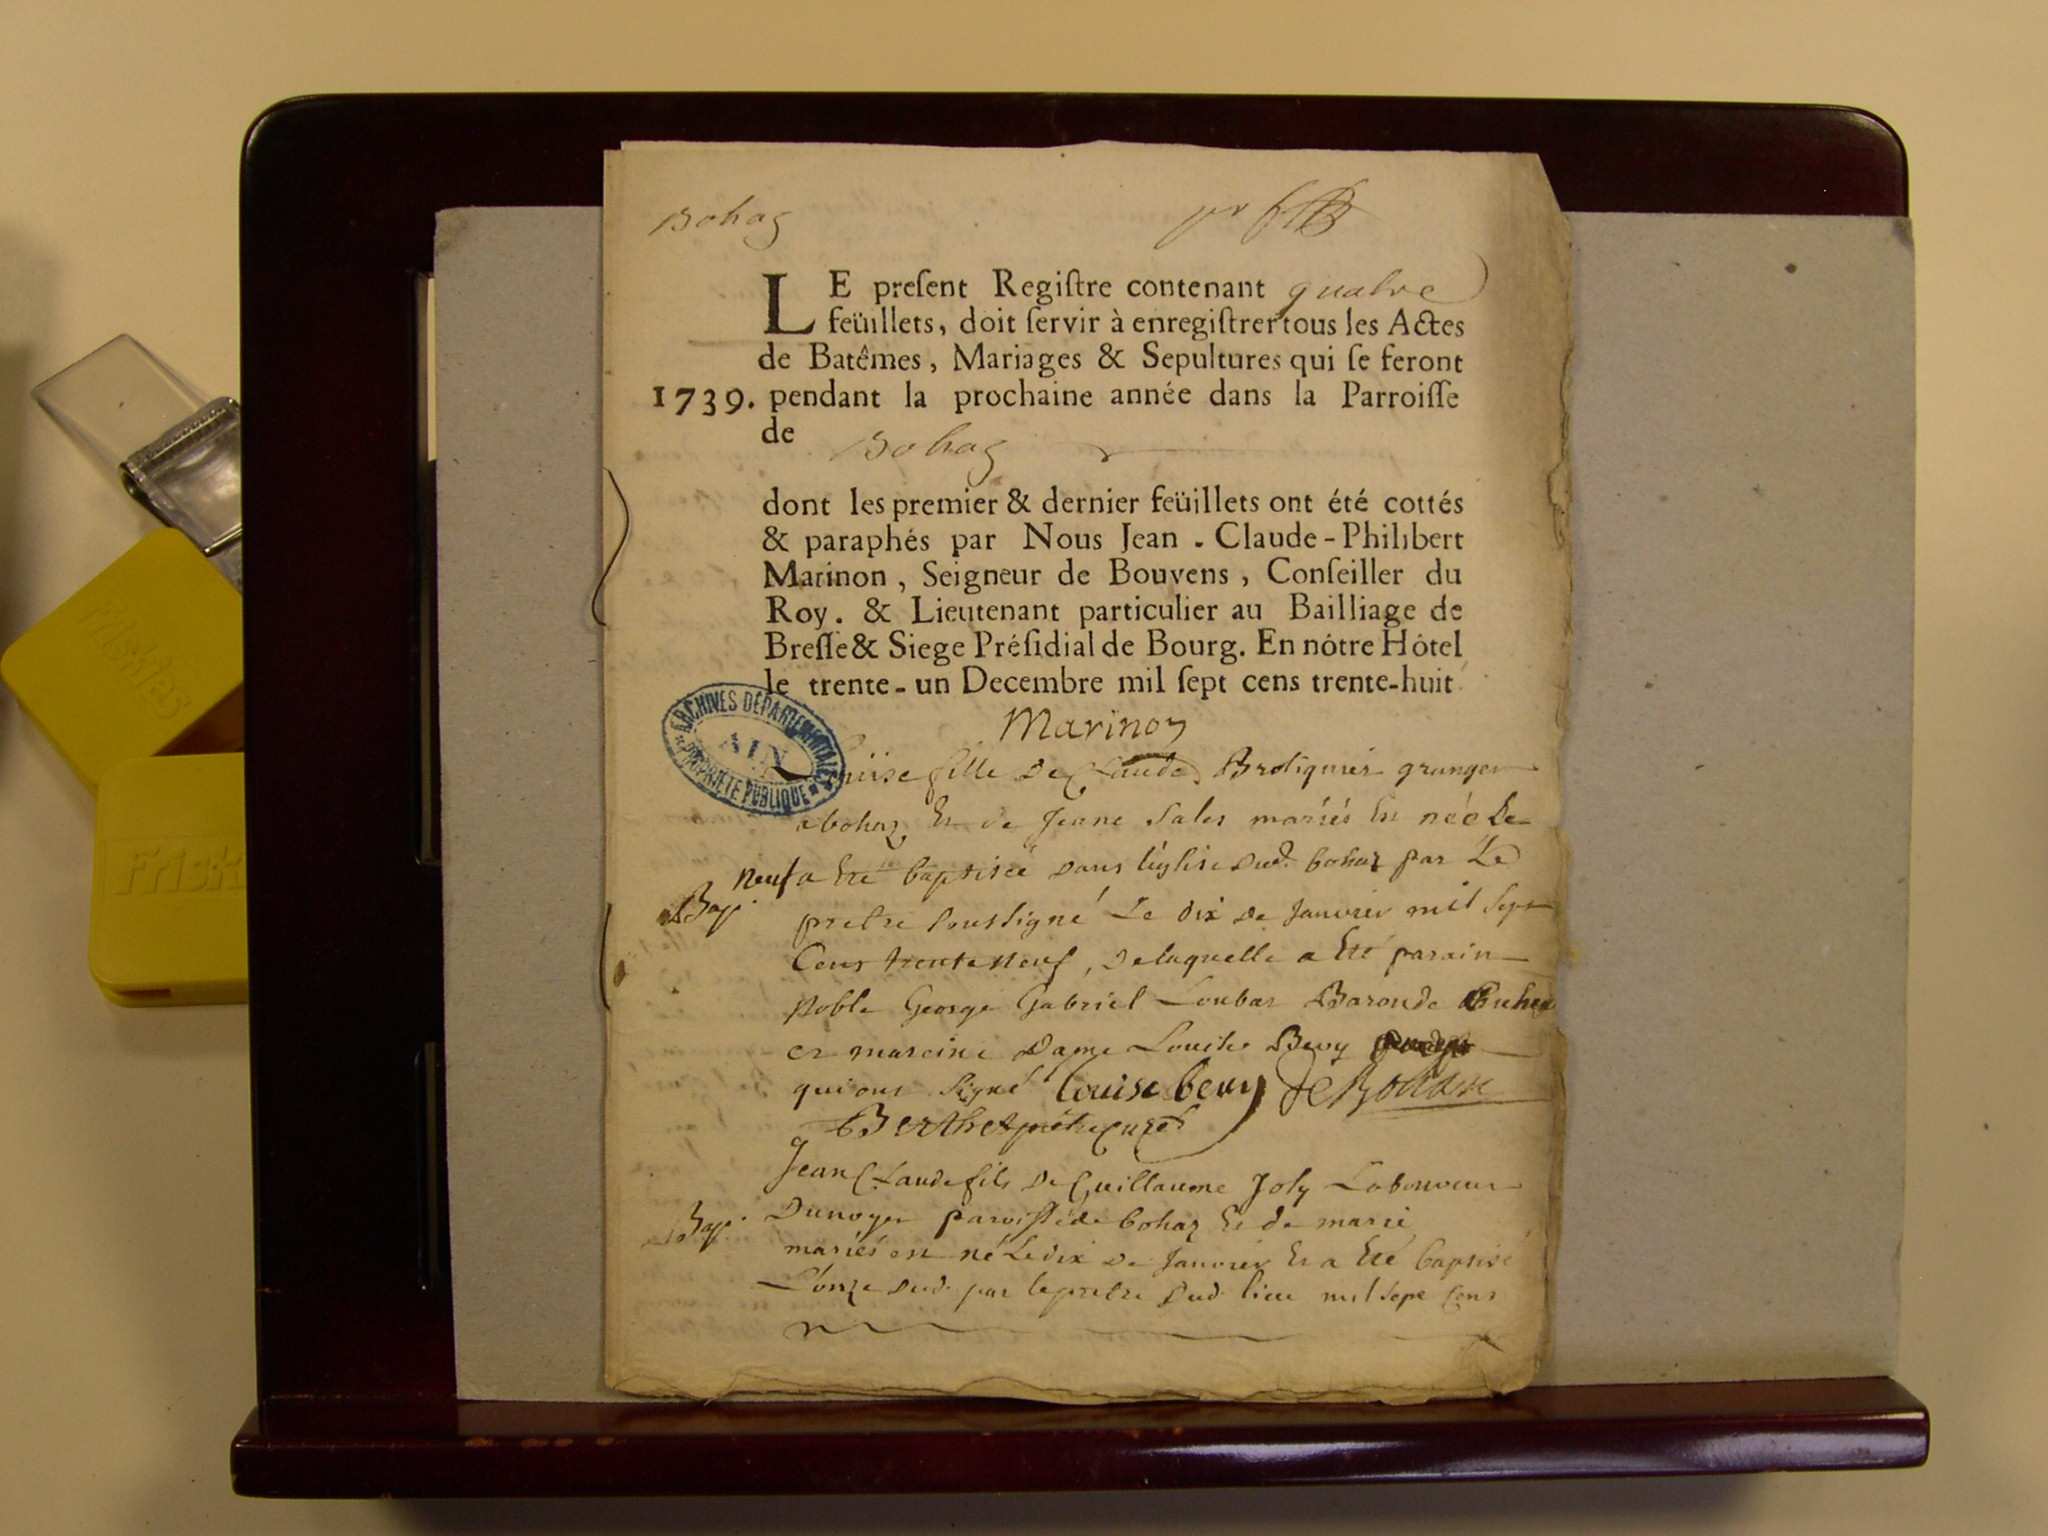 Bohaz
LE preſent Regiſtre contenant quatre
feüillets, doit ſervir à enregiſtrer tous les Actes
de Batêmes, Mariages & Sepultures qui ſe feront
1739. pendant la prochaine année dans la Parroiſſe
de Bohaz
dont les premier & dernier feüillets ont été cottés
& paraphés par Nous Jean-Claude-Philibert
Marinon, Seigneur de Bouvens, Conſeiller du
Roy. & Lieutenant particulier au Bailliage de
Breſſe & Siege Préſidial de Bourg. En nôtre Hôtel
le trente-un Decembre mil ſept cens trente-huit
Marinon
ARCHIVES DÉPARTEMENTALES
AIN
PROPRIÉTÉ PUBLIQUE
Louise fille de Claude granger
a bohaz Et de Jeane Sales mariés Est née Le
neuf a Eté baptisée dans l'église dud. bohaz par Le
Bap. pretre soussigné Le dix de Janvier mil sept
Cens trente neuf, de laquelle a Eté parain
noble George Gabriel Loubat Baron de
et mareine Dame Louise Bevy
qui ont signé Louise bevy de Bohan
Berthet prêtre curé
Jean Claude fils de Guillaume Joly Laboureur
Bap. Dunoyer paroisse de bohaz Et de marie
mariés est né Le dix de Janvier Et a Eté baptisé
L'onze dud. par le pretre dud. lieu mil sept Cens
Friskies
Frisk